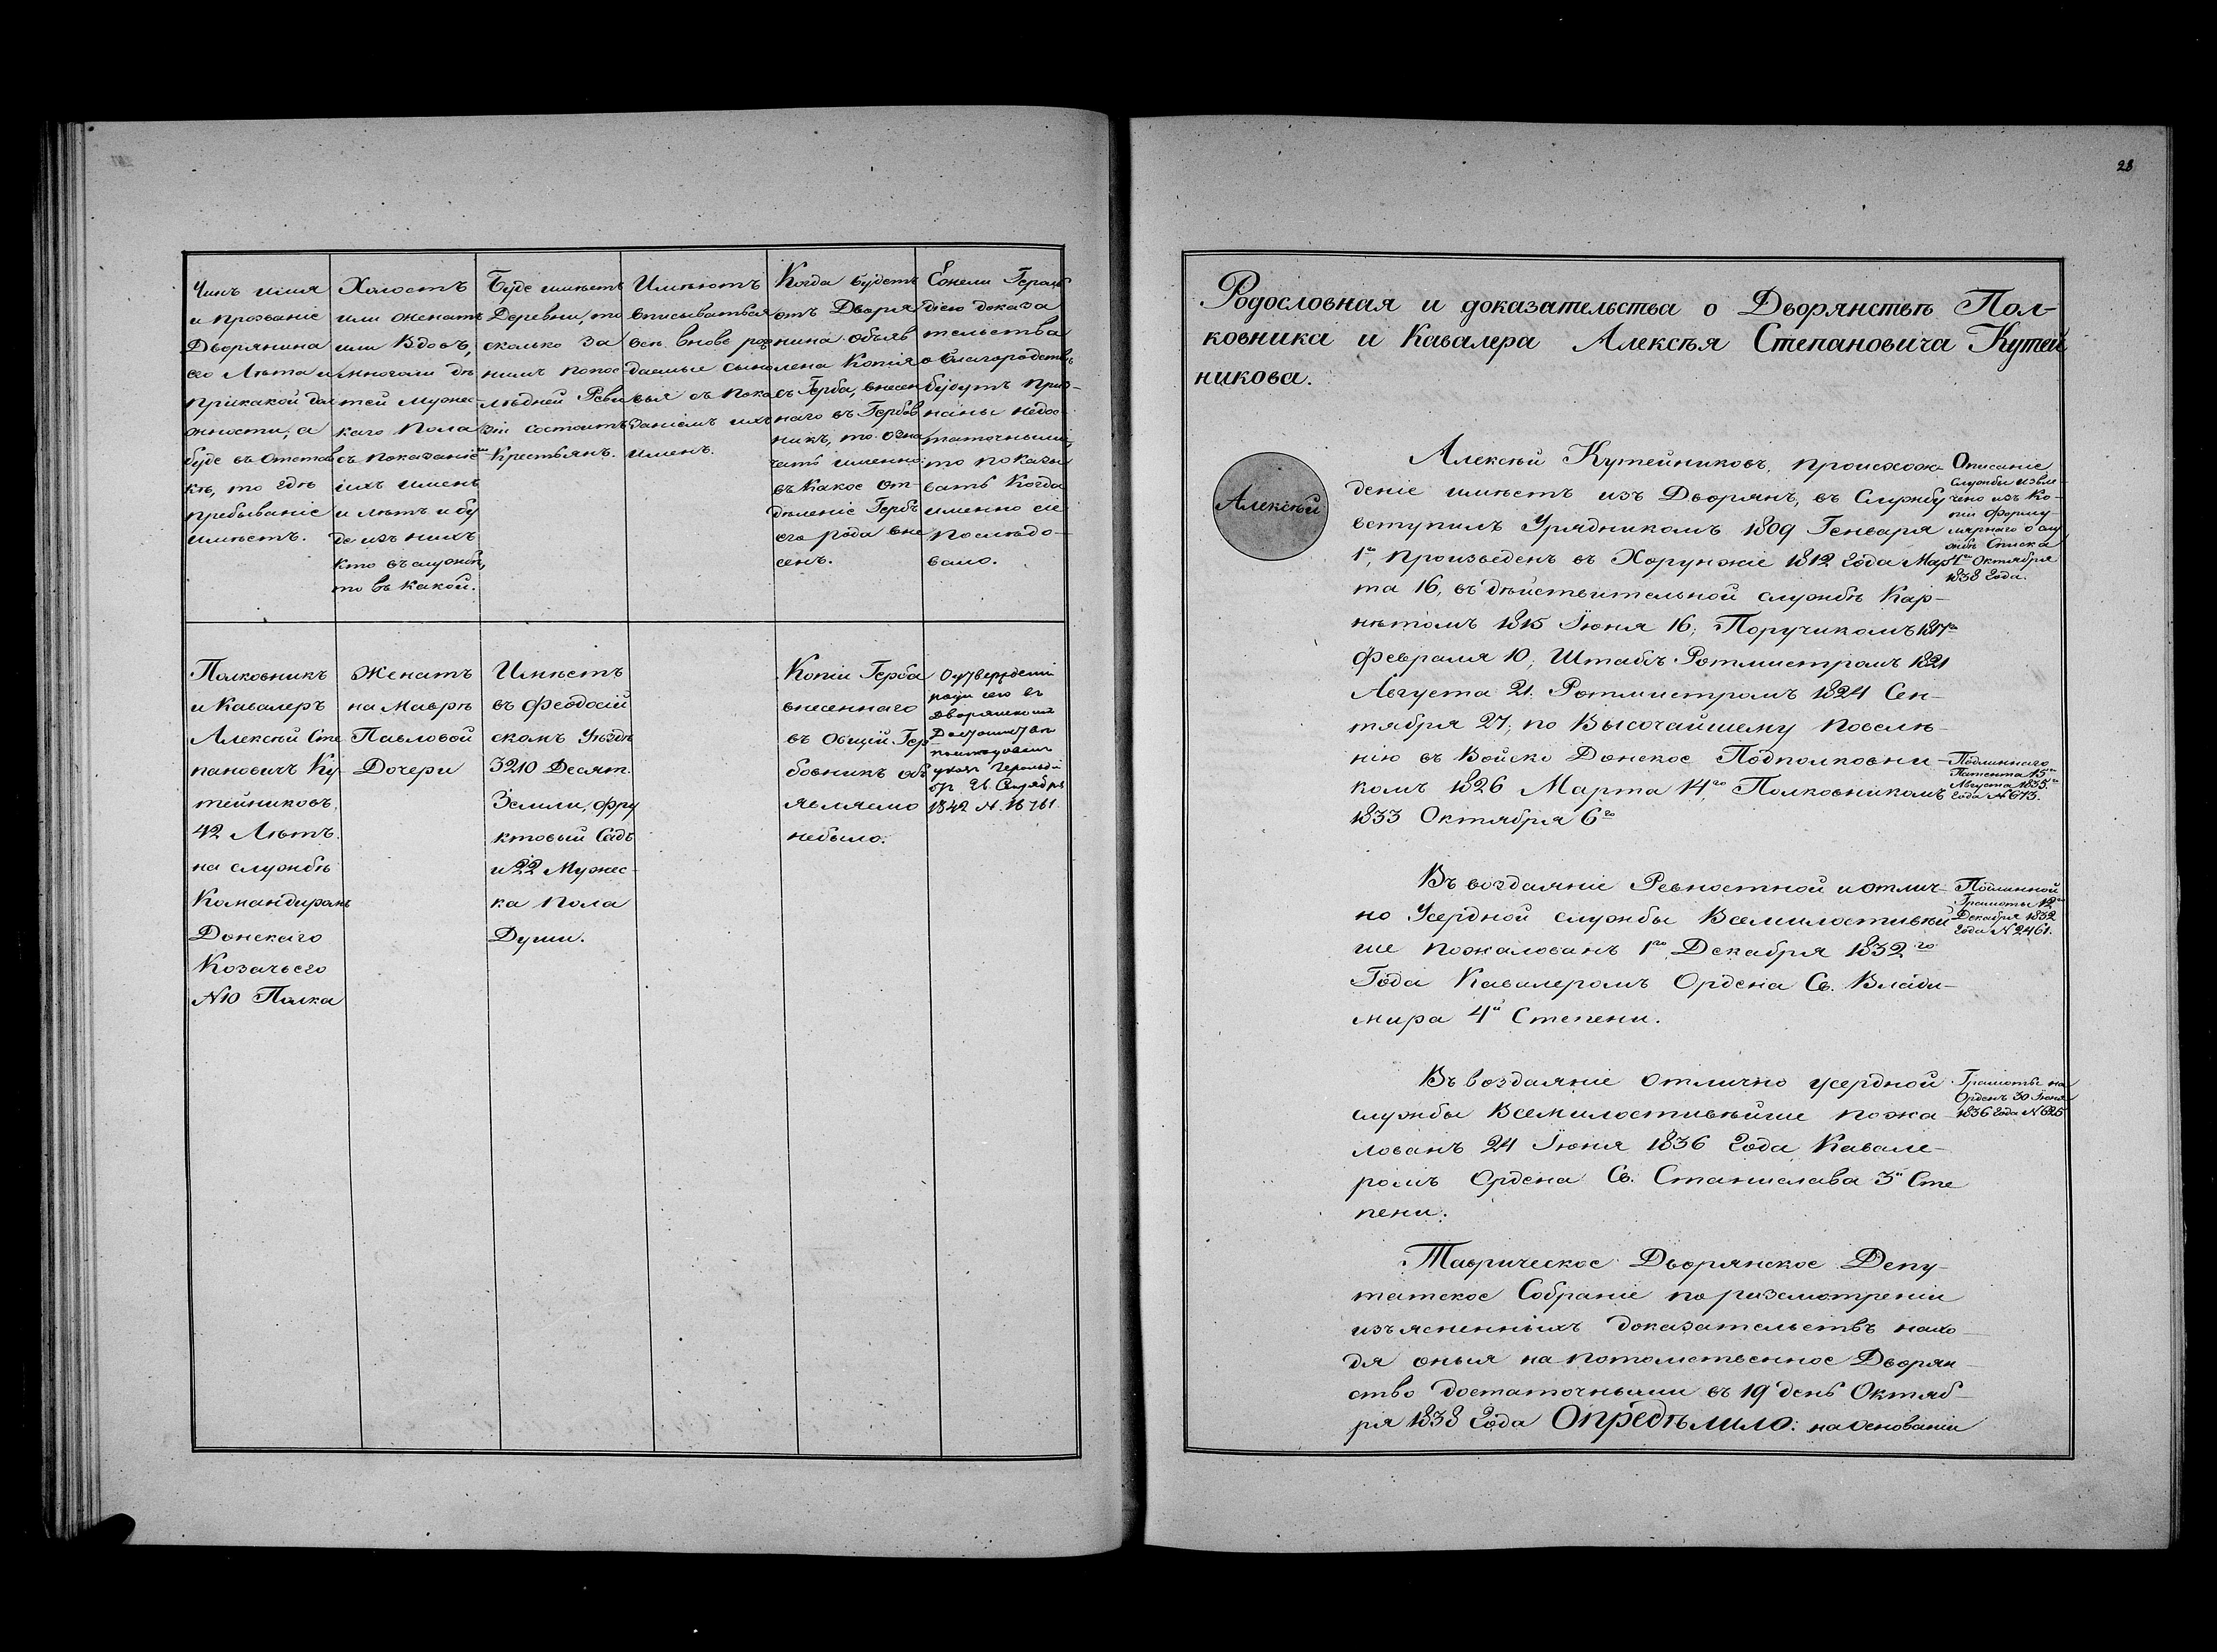 Чинъ имя
и прозваніе
Дворянина
его Лѣта и
прикакой дол
жности, а
буде въ отстав
кѣ, то гдѣ
пребываніе
имѣетъ.
Холостъ
или женатъ
или Вдовъ,
имноголи дѣ
тей мужес-
каго пола
съ показаніемъ
ихъ именъ
и лѣтъ и бу
де изъ нихъ
кто въ службѣ,
то въ какой.
Буде имѣетъ
Деревни, то
сколько за
нимъ попос
лѣдней Реви
зіи состоитъ
Крестьянъ.
Имѣютъ
вписываться
всѣ вновь рож
даемые сыно
вья съ пока
заніемъ ихъ
именъ.
Когда будетъ
отъ Дворя
нина объяв
лена Копія
съ Герба, внесен
наго въ Гербов
никъ, то озна
чать именно:
въ какое от-
дѣленіе Гербъ
его рода вне
сенъ.
Ежели Героль
діею доказа
тельства
о благородствѣ
будутъ приз-
наны недос-
таточными,
то показы
вать когда
именно сіе
послѣдо-
вало.
Полковникъ
и Кавалеръ
Алексѣй Сте
пановичъ Ку-
тейниковъ,
42 Лѣтъ.
на службѣ
Командиромъ
Донскаго
Козачьего
№10 Полка
Женатъ
на Маврѣ
Павловой
Дочери
Имѣетъ
въ Ѳеодосій
скомъ Уѣздѣ
3210 Десят.
Земли, фру
ктовый Садъ
и 22 Мужес-
ка пола
Души.
Копіи Герба
внесеннаго
въ Общій Гер
бовникъ объ
являемо
небыло.
Дворянскомъ
1842 N. 16761
28
Родословная и доказательства о Дворянствѣ Пол-
ковника и Кавалера Алексѣя Степановича Кутей
никова.
Алексѣй
Алексѣй Кутейниковъ, происхож-
деніе имѣетъ изъ Дворянъ, въ Службу
вступилъ Урядникомъ 1809 Генваря
1го, произведенъ въ Хорунжіе 1812 года Мар
та 16, въ дѣйствительной службѣ Кар-
нѣтомъ 1815 Іюня 16; Поручикомъ 1817го
Февраля 10; Штабъ Ротмистромъ 1821
Августа 21. Ротмистромъ 1824 Сен-
тября 27; по Высочайшему повелѣ-
нію въ Войско Донское Подполковни-
комъ 1826 Марта 14го Полковникомъ
1833 Октября 6го
Описаніе
Службы извле-
чено изъ Ко-
піи Форму-
лярнаго о слу
жбѣ Списка
4го Октября
1838 года.
Подлиннаго
Патента 15го
Августа 1835го
года №673.
Въ воздаяніе Ревностной и отлич-
но Усердной службы Всемилостивѣй
ше пожалованъ 1го Декабря 1832го
Года Кавалеромъ Ордена Св. Влади-
мира 4й Степени.
Подлинной
Грамоты 12го
Декабря 1832
года №2461.
Въ воздаяніе отлично усердной
службы Всемилостивѣйше пожа-
лованъ 24 Іюня 1836 года Кавале-
ромъ Ордена Св. Станислава 3й Сте
пени.
Грамоты на
Орденъ 30 Іюня
1836 года №625
Таврическое Дворянское Депу-
татское Собраніе по разсмотреніи
изъясненныхъ доказательствъ нахо-
дя оныя на потомственное Дворян-
ство достаточными въ 19 день Октяб-
ря 1838 года Опредѣлило: на основаніи